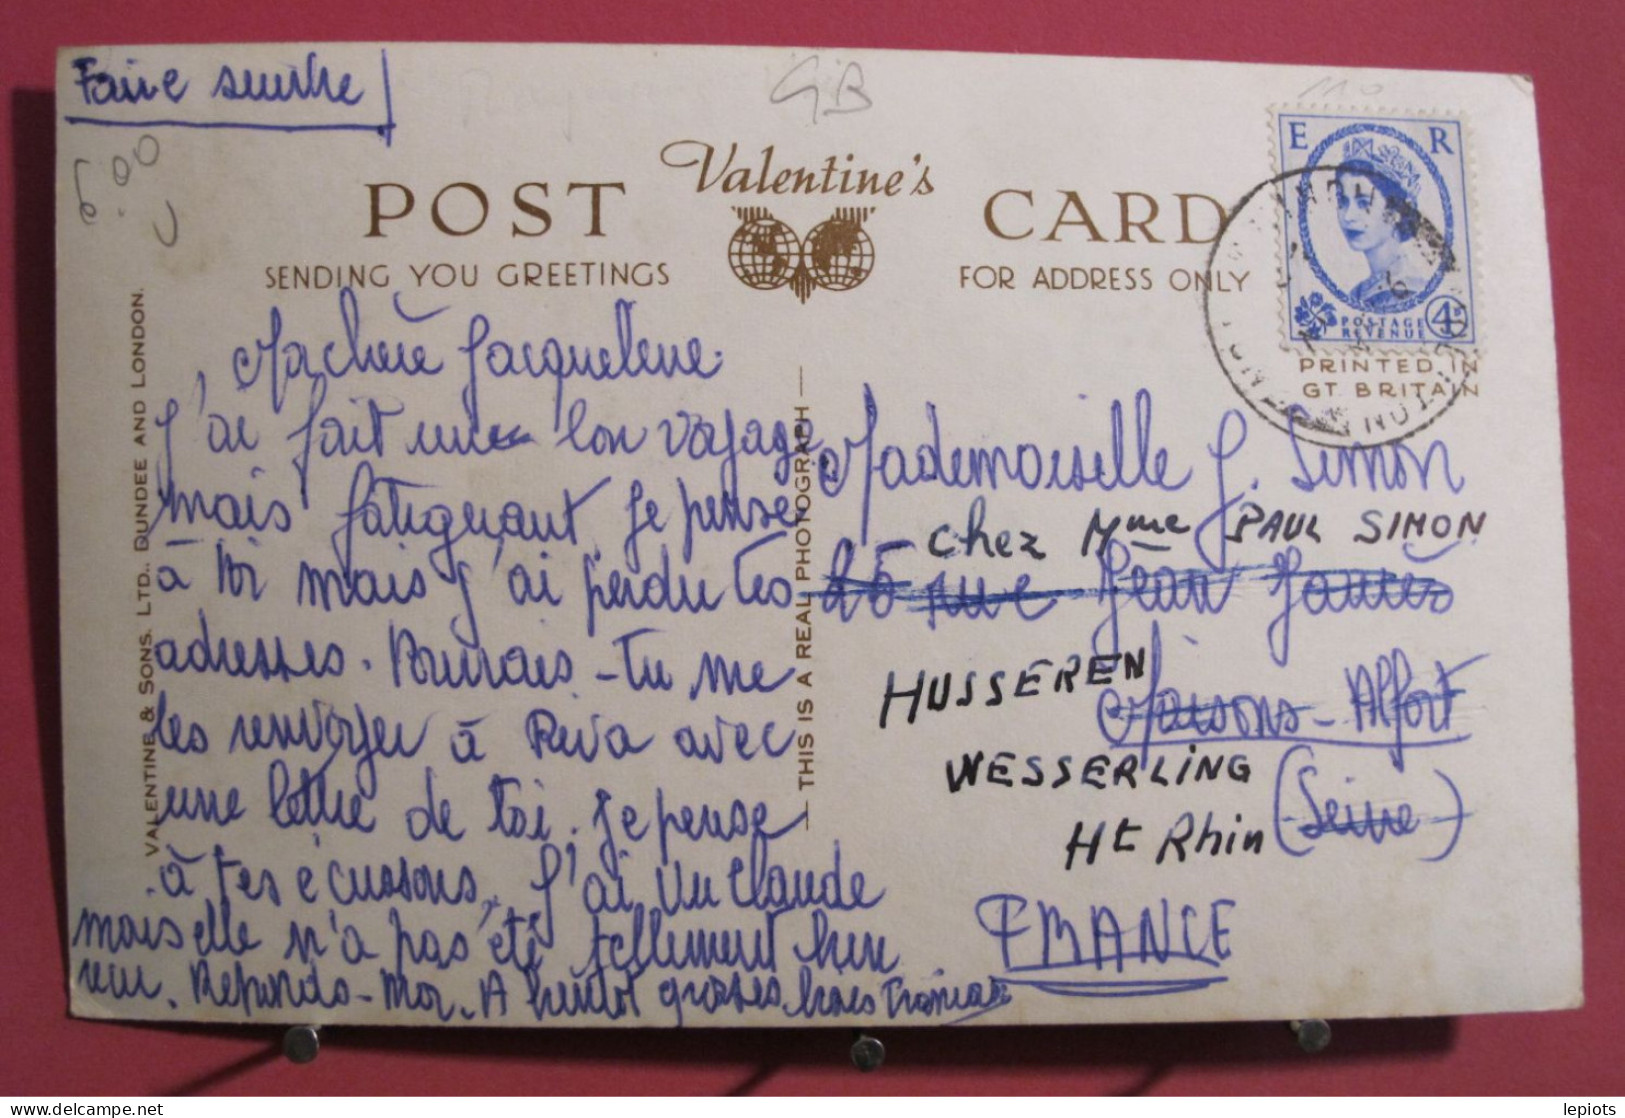 Faire suivre
GB
110
6.00
U
Valentine's
POST CARD
SENDING YOU GREETINGS
FOR ADDRESS ONLY
E R
POSTAGE
REVENUE
4D
PRINTED IN
GT. BRITAIN
VALENTINE & SONS. LTD., DUNDEE AND LONDON.
THIS IS A REAL PHOTOGRAPH
Ma chère Jacqueline.
J'ai fait une bon voyage
mais fatiguant, je pense
à toi mais j'ai perdu tes
adresses. Pourrais-tu me
les renvoyer à Riva avec
une lettre de toi. Je pense
à tes écussons. J'ai vu Claude
mais elle n'a pas été tellement heu
reu. Reponds-moi. A bientot grosses bises
Mademoiselle J. Simon
chez Mme PAUL SIMON
25 rue Jean Jaurès
HUSSEREN
Maisons-Alfort
WESSERLING
(Seine)
Ht Rhin
FRANCE
lepiots